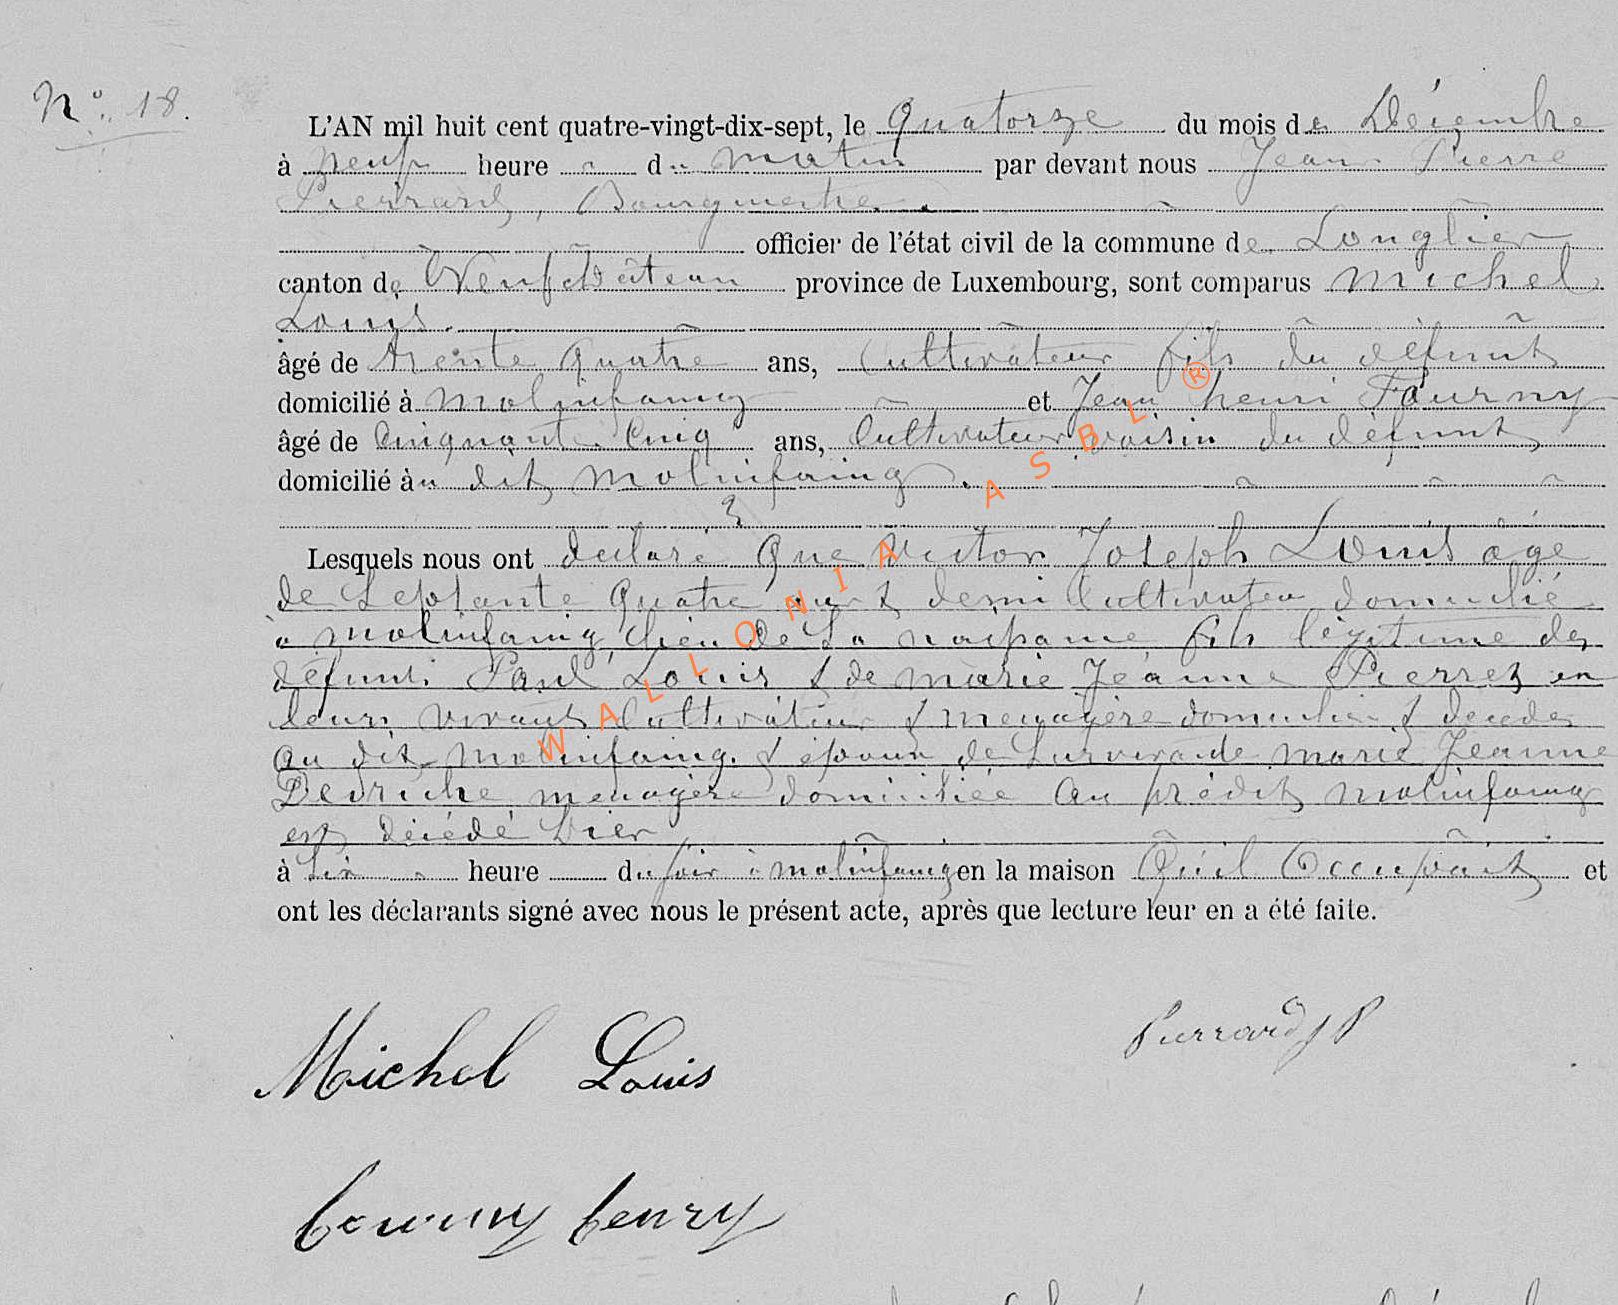 N° 18.
L'AN mil huit cent quatre-vingt-dix-sept, le Quatorze du mois de Décembre
à neuf heure du matin par devant nous Jean Pierre
Pierrard, Bourgmestre.
officier de l'état civil de la commune de Longlier
canton de Neufchâteau province de Luxembourg, sont comparus Michel
Louis.
âgé de trente quatre ans, Cultivateur fils du défunt
domicilié à Molinfaing et Jean henri Fourny
âgé de Cinquante Cinq ans, Cultivateur voisin du défunt
domicilié au dit Molinfaing.
Lesquels nous ont déclaré Que Victor Joseph Louis âgé
de Septante Quatre ans & demi Cultivateur domicilié
à Molinfaing, lieu de Sa naissance fils légitime des
défunts Paul Louis & de marie Jeanne Pierrez en
leurs vivants Cultivateur & menagère domiciliés & décédés
au dit Molinfaing. & époux de Survivante marie Jeanne
menagère domiciliée au prédit Molinfaing
est décédé hier
à Six heure du soir à molinfaing en la maison Qu'il Occupait et
ont les déclarants signé avec nous le présent acte, après que lecture leur en a été faite.
WALLONIA ASBL ®
Pierrard J P
Michel Louis
Fourny henry